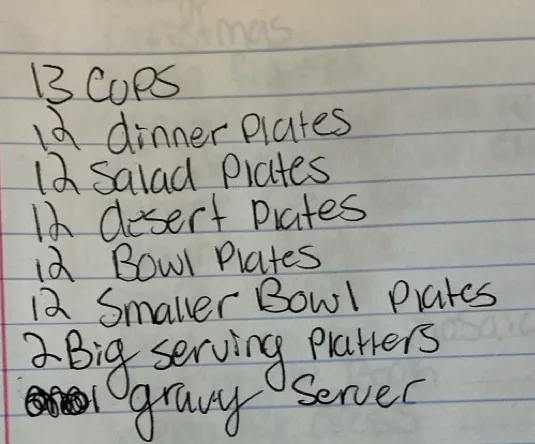 13 cups
12 dinner plates
12 Salad plates
12 desert plates
12 Bowl plates
12 Smaller Bowl plates
2 Big serving platters
1 gravy Server